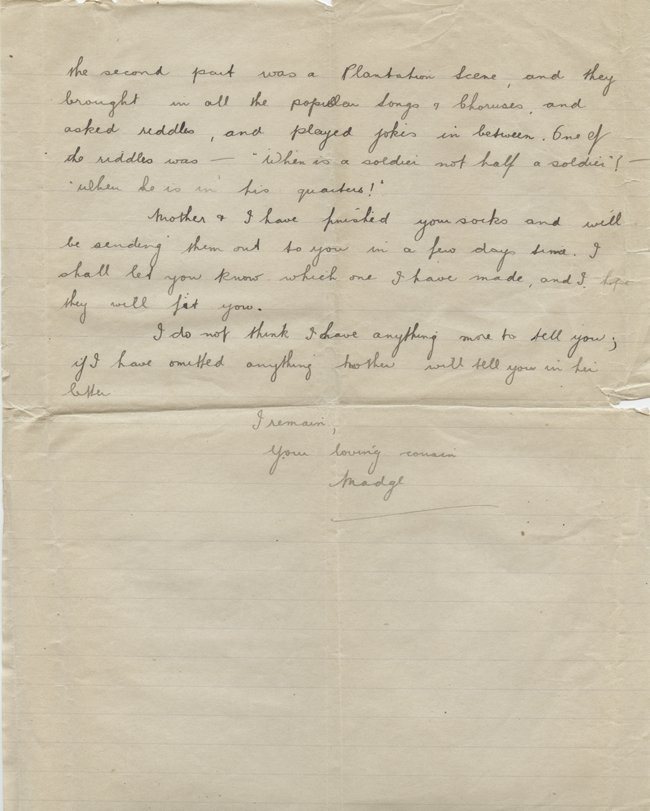 the second part was a Plantation Scene, and they
brought in all the popular Songs & Choruses, and
asked riddles, and played jokes in between. One of
the riddles was — "When is a soldier not half a soldier"? —
"When he is in his quarters!"
Mother & I have finished your socks and will
be sending them out to you in a few days time. I
shall let you know which one I have made, and I hope
they will fit you.
I do not think I have anything more to tell you;
if I have omitted anything Mother will tell you in her
letter
I remain,
Your loving cousin
Madge